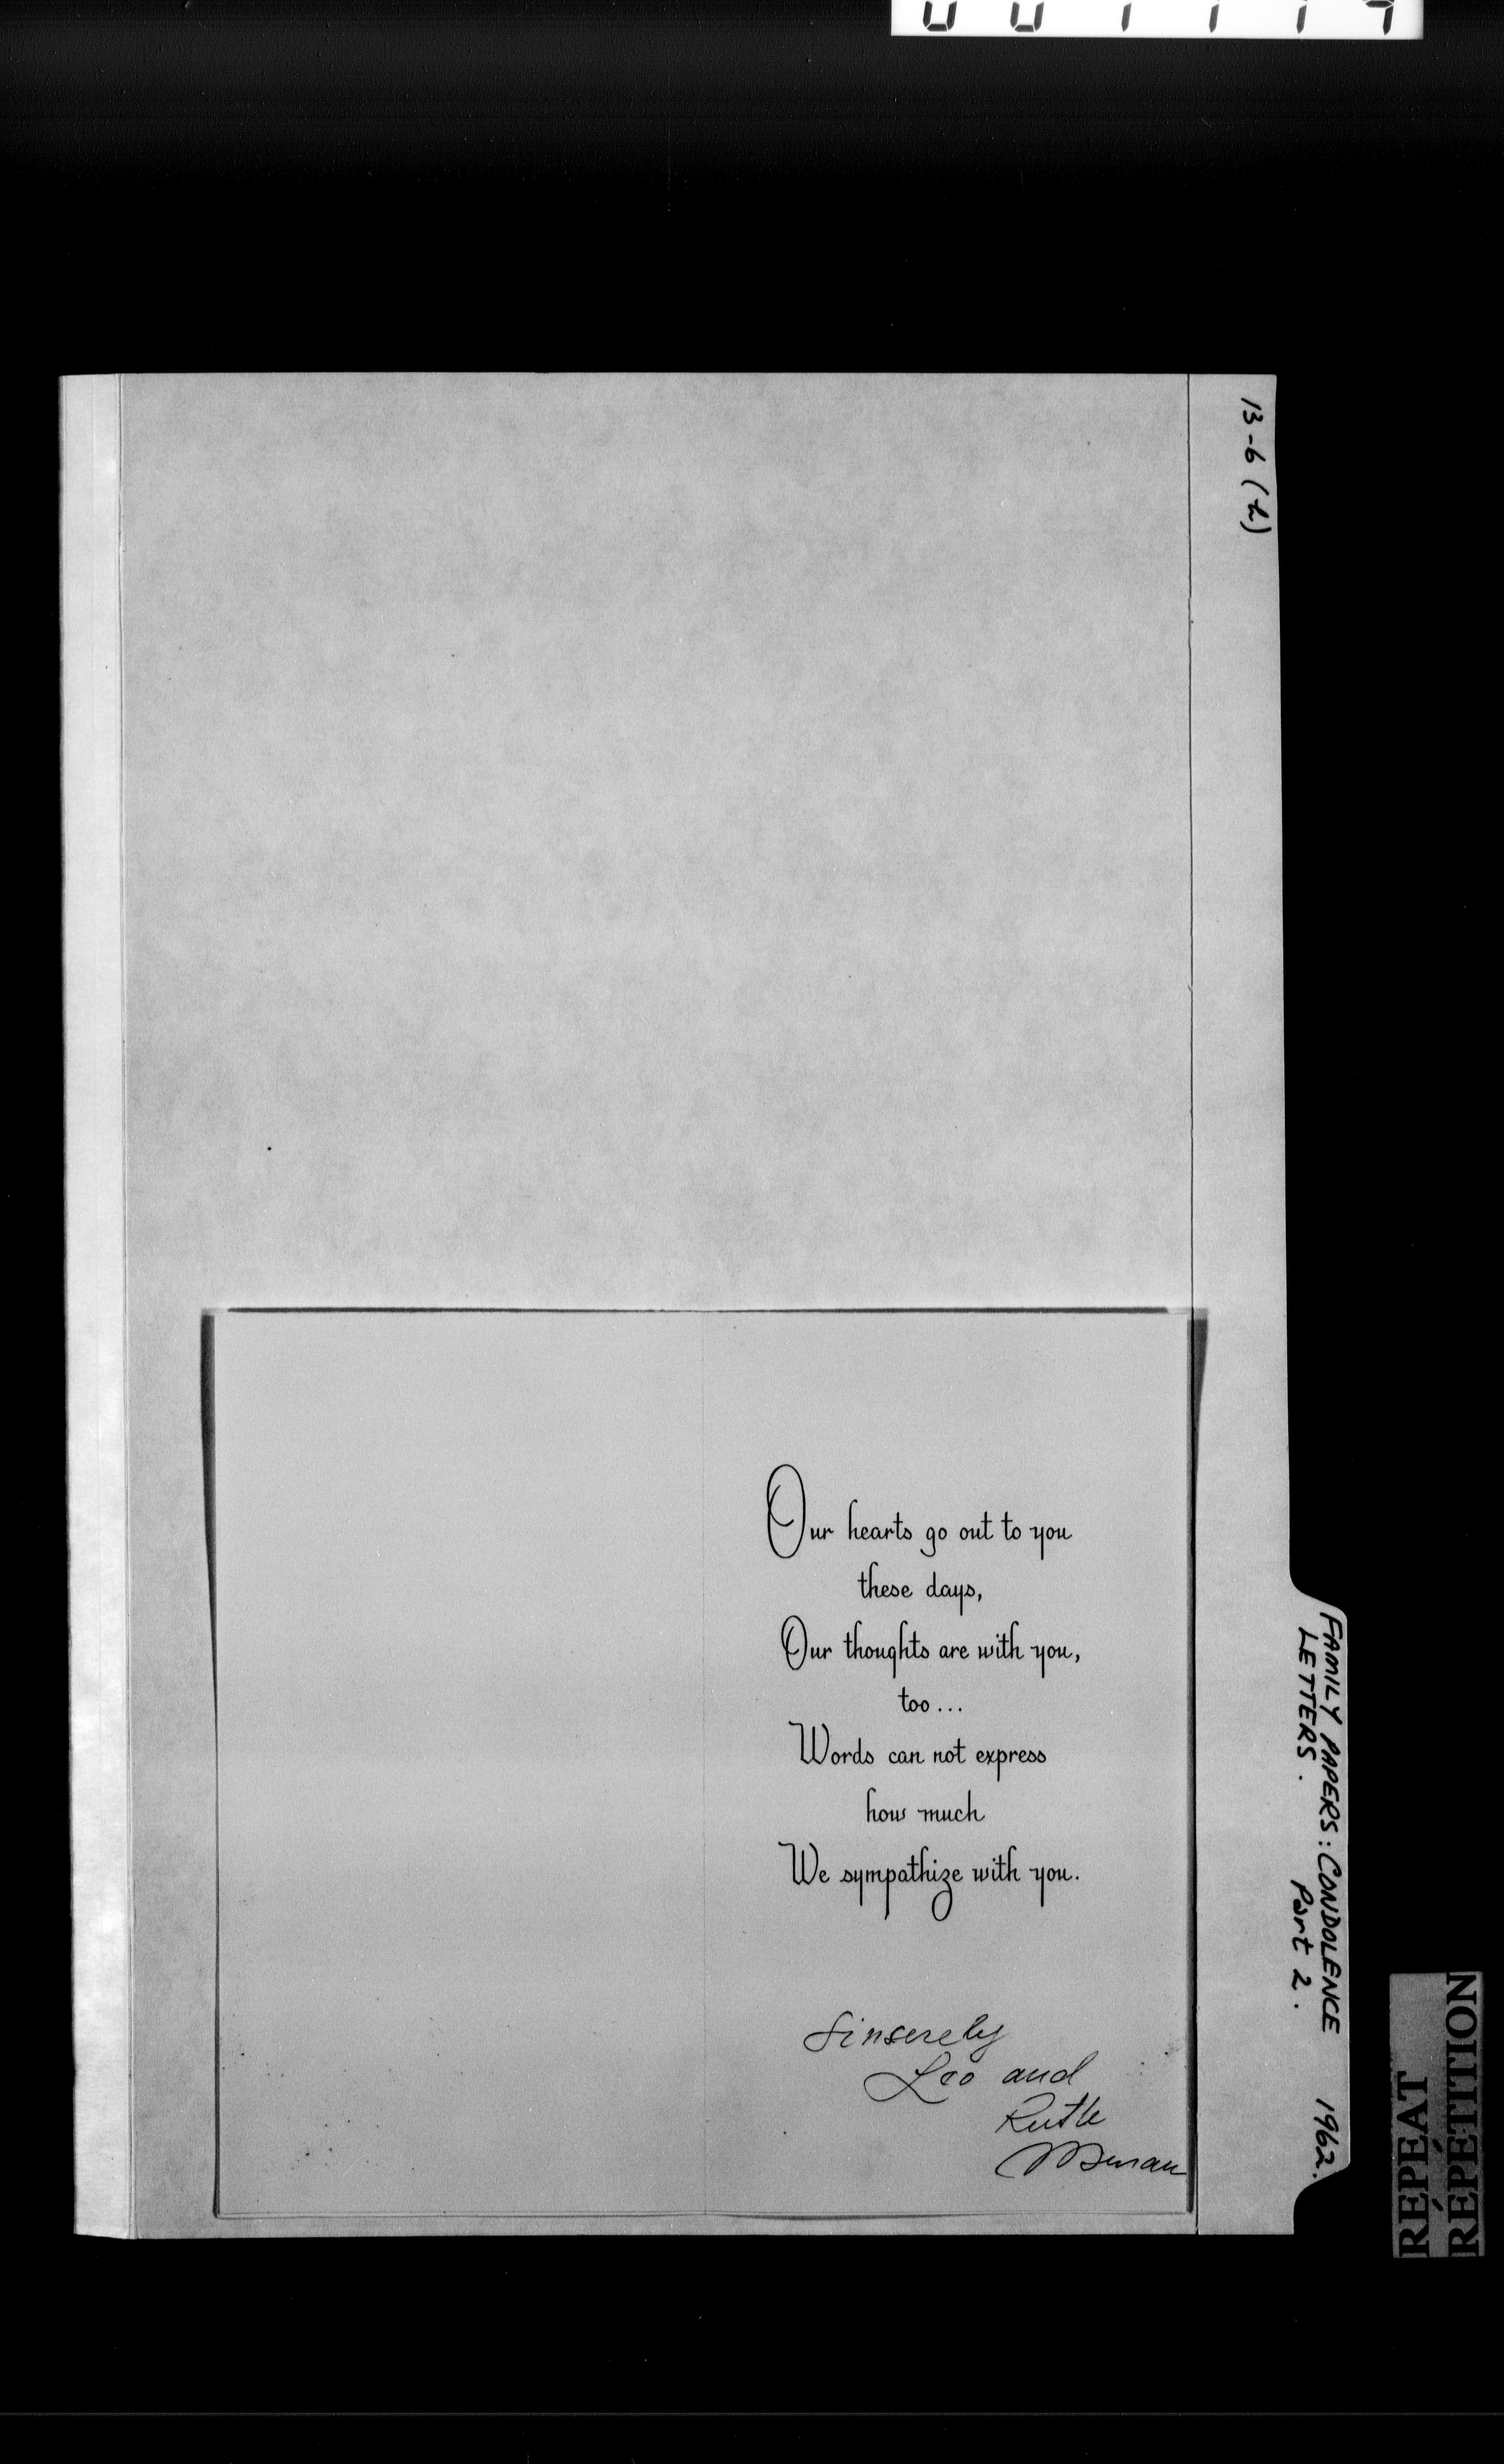 13-6 (h)
Our hearts go out to you
these days,
Our thoughts are with you,
too...
Words can not express
how much
We sympathize with you.
Sinserely
Leo and
Ruth
FAMILY PAPERS: CONDOLENCE 1962.
LETTERS. Part 2.
REPEAT
RÉPÉTITION